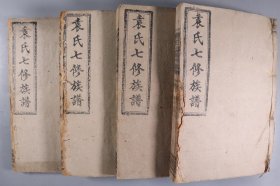 袁氏七修族譜
袁氏七修族譜
袁氏七修族譜
袁氏七修族譜